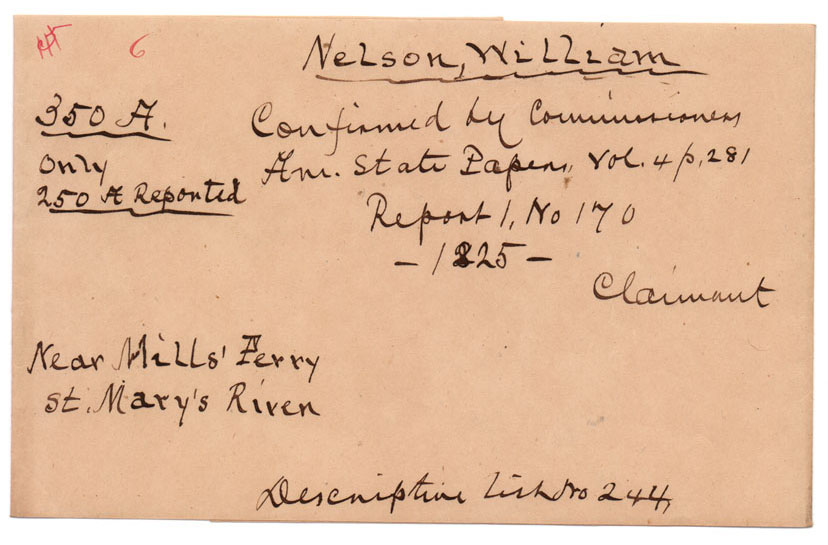 6
Nelson, William
350 A.
Only
250 A Reported
Confirmed by Commissioners
Am. State Papers, Vol. 4 p, 281
Report 1, No 170
- 1825 -
Claimant
Near Mills' Ferry
St. Mary's River
Descriptive List No 244